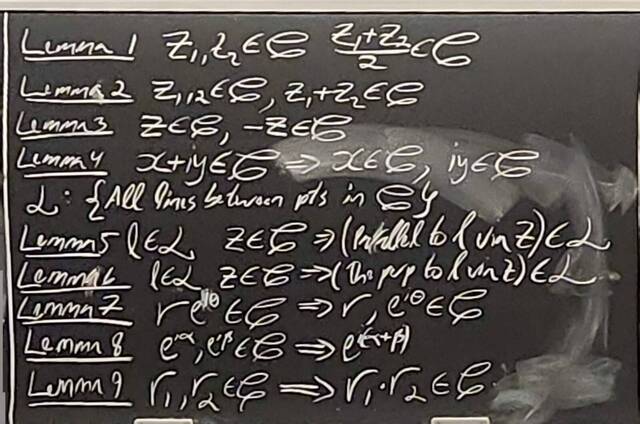 Lemma 1 z₁, z₂ ∈ 𝒞 (z₁+z₂)/2 ∈ 𝒞
Lemma 2 z₁,₂ ∈ 𝒞, z₁+z₂ ∈ 𝒞
Lemma 3 z ∈ 𝒞, -z ∈ 𝒞
Lemma 4 x+iy ∈ 𝒞 ⇒ x ∈ 𝒞, iy ∈ 𝒞
ℒ: {All lines between pts in 𝒞}
Lemma 5 l ∈ ℒ z ∈ 𝒞 ⇒ (Parallel to l via z) ∈ ℒ
Lemma 6 l ∈ ℒ z ∈ 𝒞 ⇒ (The perp to l via z) ∈ ℒ.
Lemma 7 re^{iθ} ∈ 𝒞 ⇒ r, e^{iθ} ∈ 𝒞
Lemma 8 e^{iα}, e^{iβ} ∈ 𝒞 ⇒ e^{i(α+β)}
Lemma 9 r₁, r₂ ∈ 𝒞 ⇒ r₁·r₂ ∈ 𝒞.